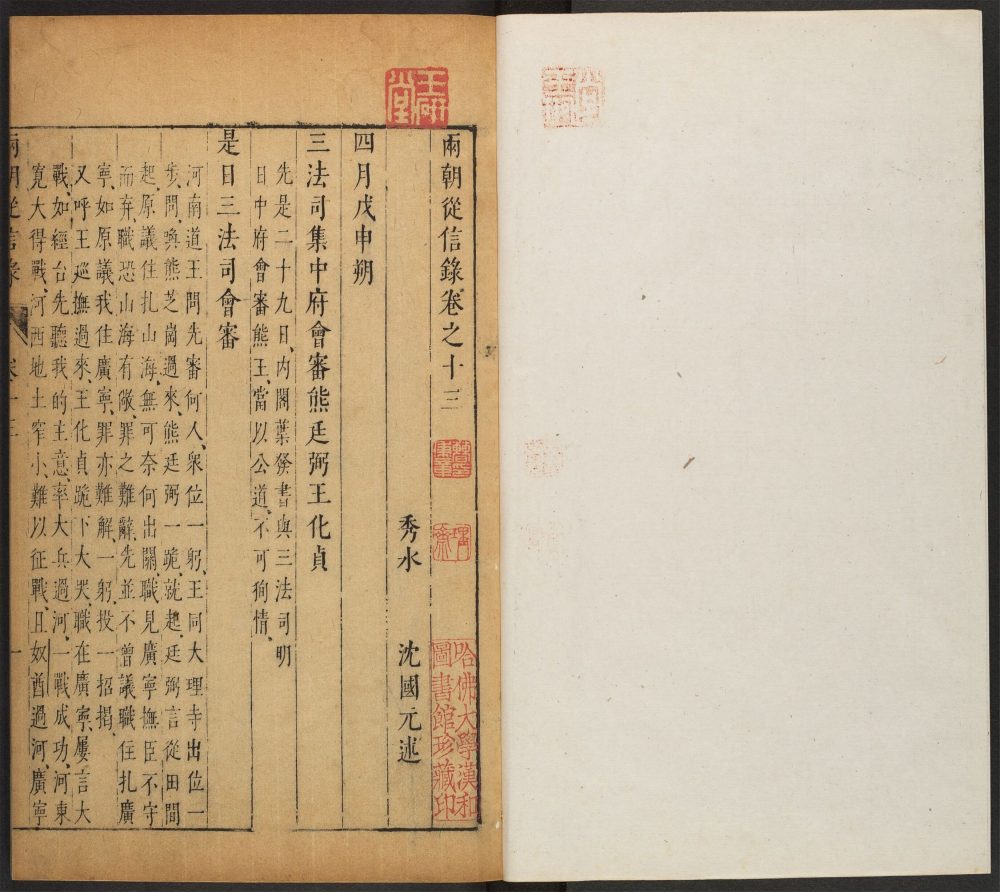 兩朝從信錄卷之十三
秀水 沈國元述
四月戊申朔
三法司集中府會審熊廷弼王化貞
先是二十九日、內閣葉發書與三法司明
日中府會審熊王、當以公道、不可狥情、
是日三法司會審
河南道王問先審何人、衆位一躬、王同大理寺出位一
步、問、喚熊芝崗過來、熊廷弼一跪、就起、廷弼言從田間
起、原議住扎山海、無可奈何出關、職見廣寧撫臣不守
而弃、職恐山海有𨻶、罪之難辭、先並不曾議職住扎廣
寧、如原議我住廣寧、罪亦難解、一躬、投一招揭、
又呼王巡撫過來、王化貞跪下大哭、職在廣寧、屢言大
戰、如經台先聽我的主意、率大兵過河、一戰成功、河東
寛大得戰、河西地土窄小、難以征戰、且奴酋過河、廣寧
兩朝從信錄 卷十三 一
哈佛大學漢和
圖書館珍藏印